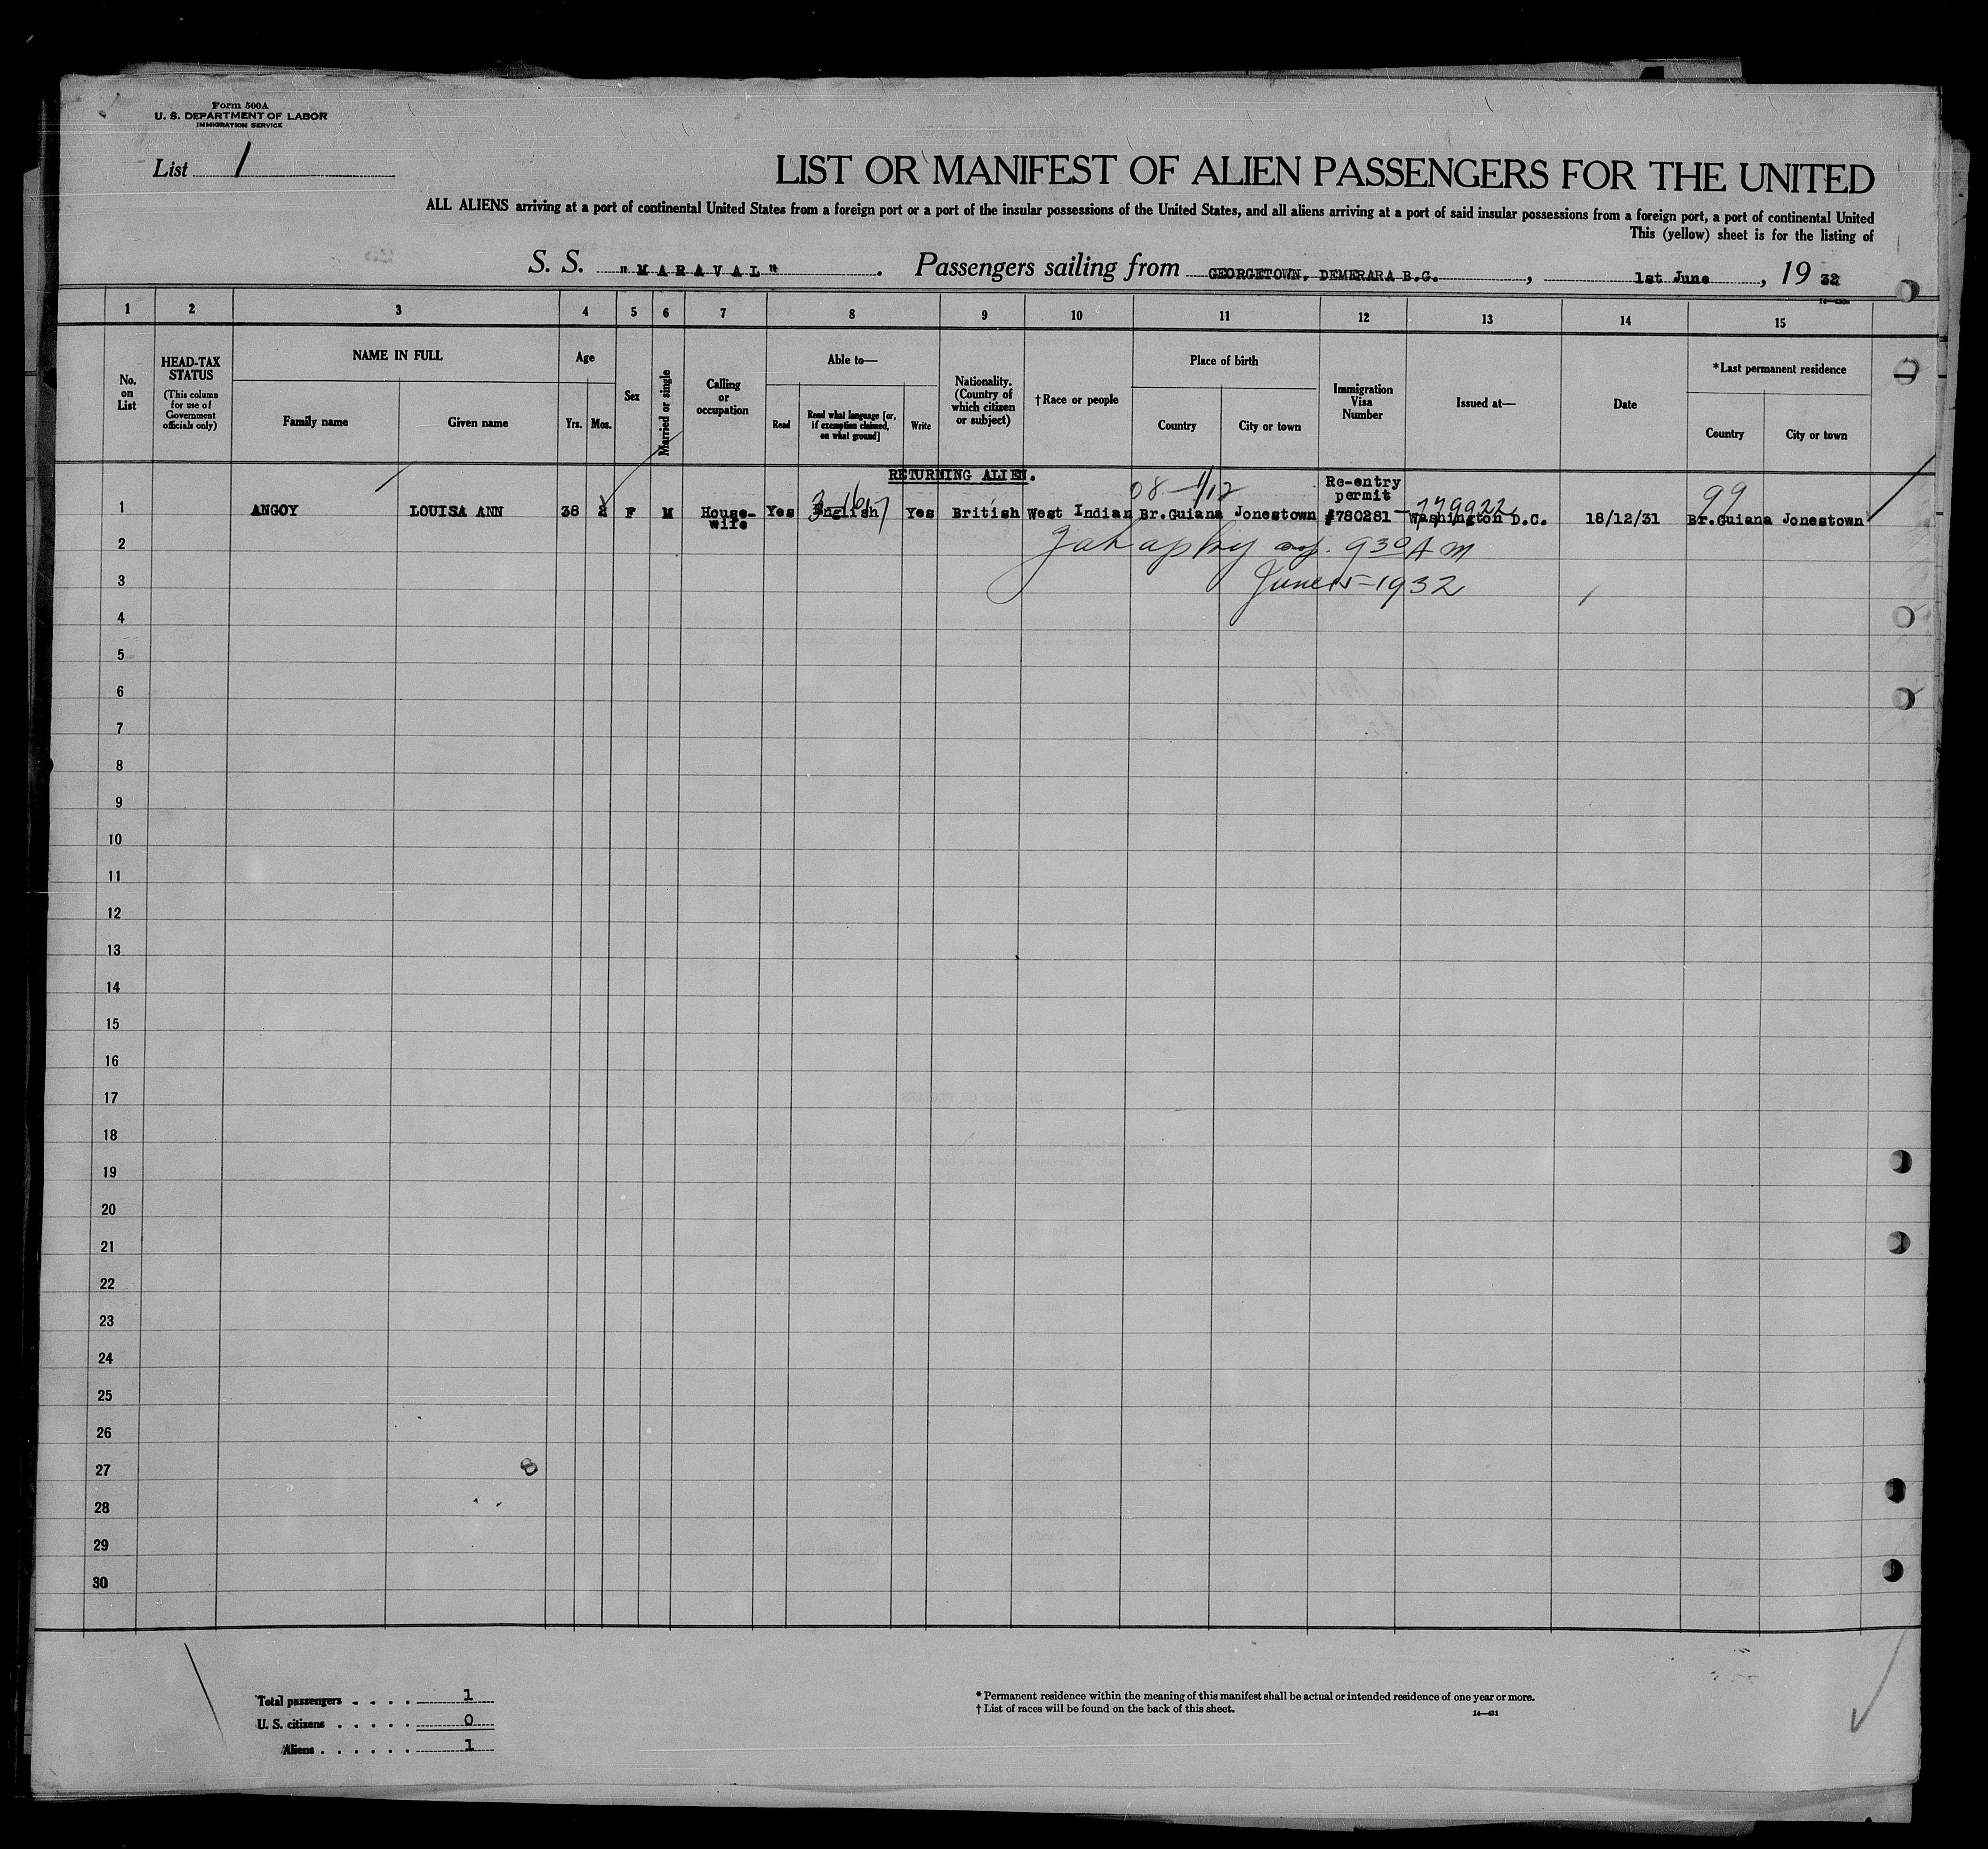 Form 500A
U. S. DEPARTMENT OF LABOR
IMMIGRATION SERVICE
List 1
LIST OR MANIFEST OF ALIEN PASSENGERS FOR THE UNITED
ALL ALIENS arriving at a port of continental United States from a foreign port or a port of the insular possessions of the United States, and all aliens arriving at a port of said insular possessions from a foreign port, a port of continental United
This (yellow) sheet is for the listing of
S. S. "MARAVAL". Passengers sailing from GEORGETOWN, DEMERARA B.G., 1st June, 19 32
1 2 3 4 5 6 7 8 9 10 11 12 13 14 15
No. on List
HEAD-TAX STATUS
(This column for use of Government officials only)
NAME IN FULL
Family name
Given name
Age
Yrs.
Mos.
Sex
Married or single
Calling or occupation
Able to—
Read
Read what language [or, if exemption claimed, on what ground]
Write
Nationality. (Country of which citizen or subject)
†Race or people
Place of birth
Country
City or town
Immigration Visa Number
Issued at—
Date
*Last permanent residence
Country
City or town
RETURNING ALIEN.
08 – 1/12
Re-entry permit
779922
99
1 ANGOY LOUISA ANN 38 2 F M House-wife Yes English Yes British West Indian Br.Guiana Jonestown #780281 – Washington D.C. 18/12/31 Br.Guiana Jonestown
2
930 AM
3
June 15-1932
4
5
6
7
8
9
10
11
12
13
14
15
16
17
18
19
20
21
22
23
24
25
26
27
28
29
30
Total passengers . . . . 1
U. S. citizens . . . . . 0
Aliens . . . . . . 1
* Permanent residence within the meaning of this manifest shall be actual or intended residence of one year or more.
† List of races will be found on the back of this sheet.
14—431